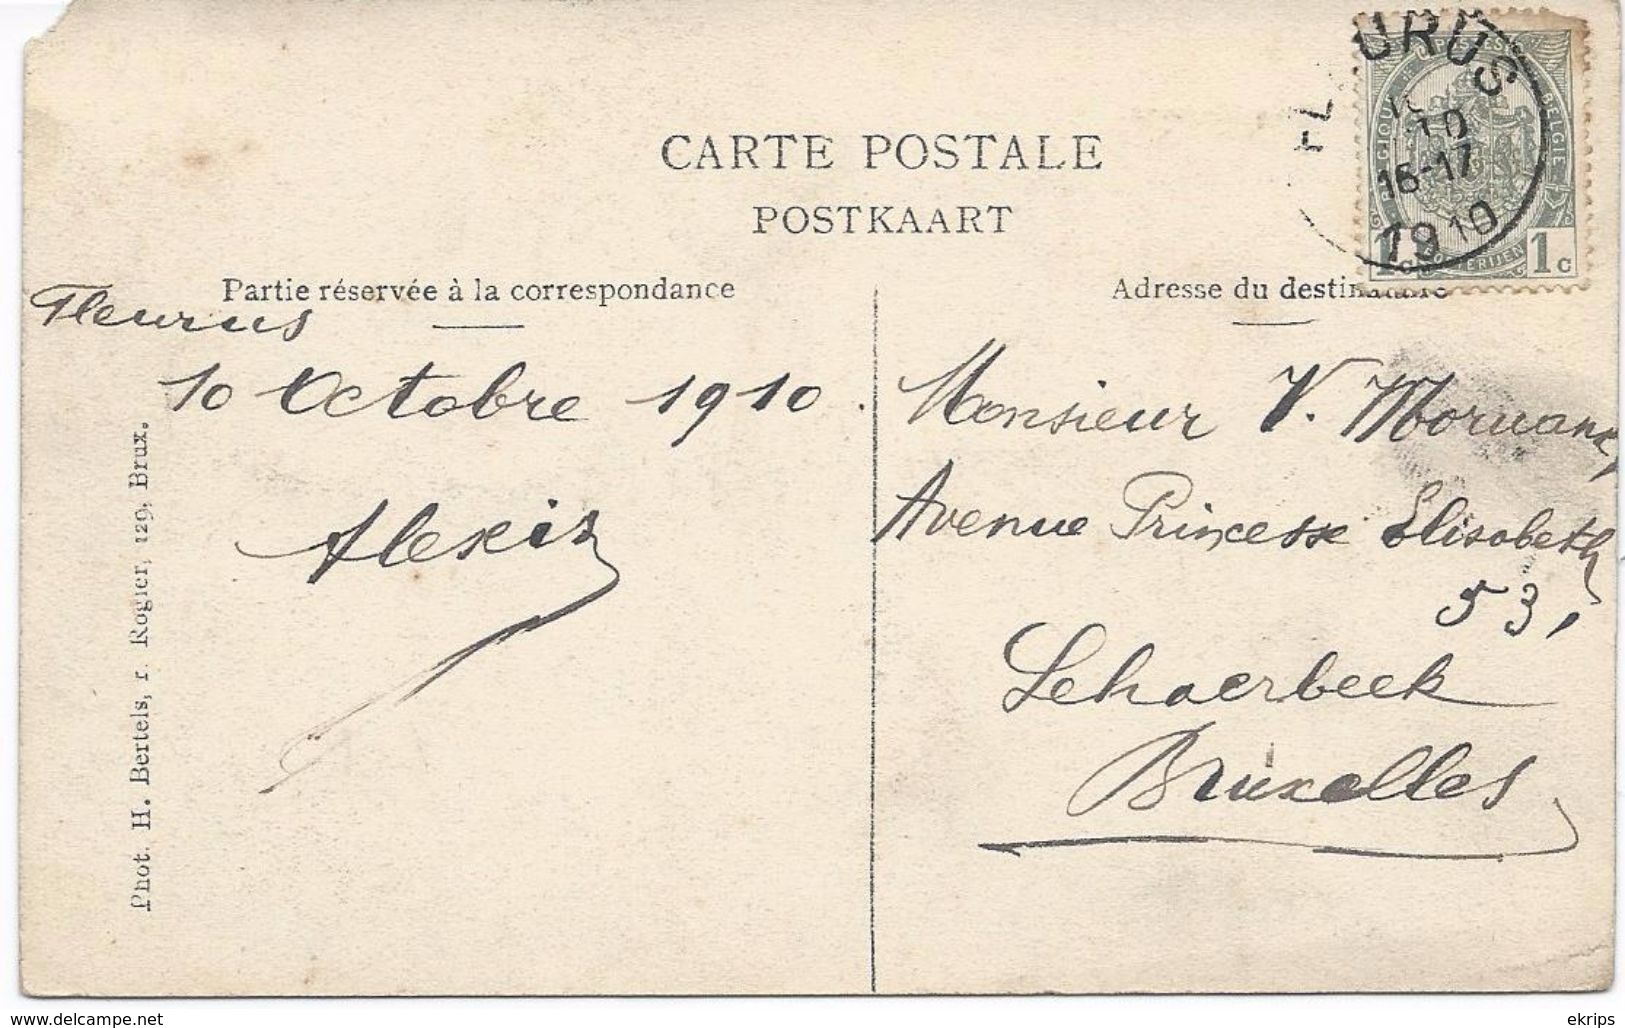 CARTE POSTALE
POSTKAART
Partie réservée à la correspondance
Fleurus
10 Octobre 1910.
Alexis
Phot. H. Bertels, r. Rogier, 129, Brux.
Adresse du destinataire
Monsieur V.
Avenue Princesse Elisabeth
53,
Schaerbeek
Bruxelles
FLEURUS
10
16-17
1910
POSTERIJEN
BELGIE
1c
1c
www.delcampe.net
ekrips